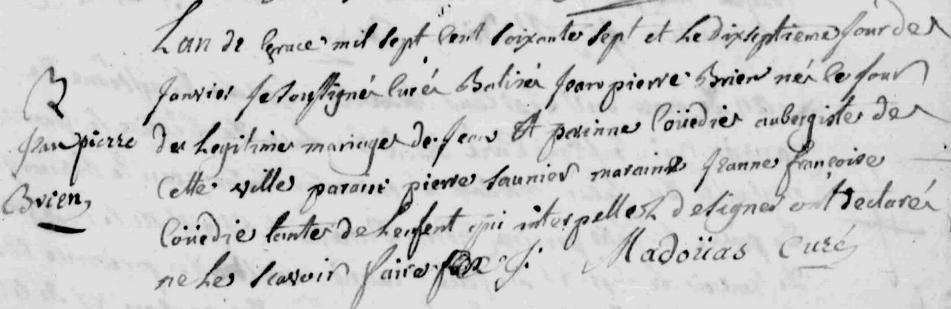 Lan de Grace mil sept Cent soixante sept et Le Dixseptieme Jour de
Janvier Je soussigné Curé Batisé Jean pierre Brien né le Jour
Jean pierre
Brien
du Legitime mariage de Jean Et perinne Coüedic aubergiste de
Cette ville parain pierre saunier maraine Jeanne françoise
Coüedic tante de Lenfent qui interpellez de signer ont declaré
ne Le scavoir faire
Madoüas Curé